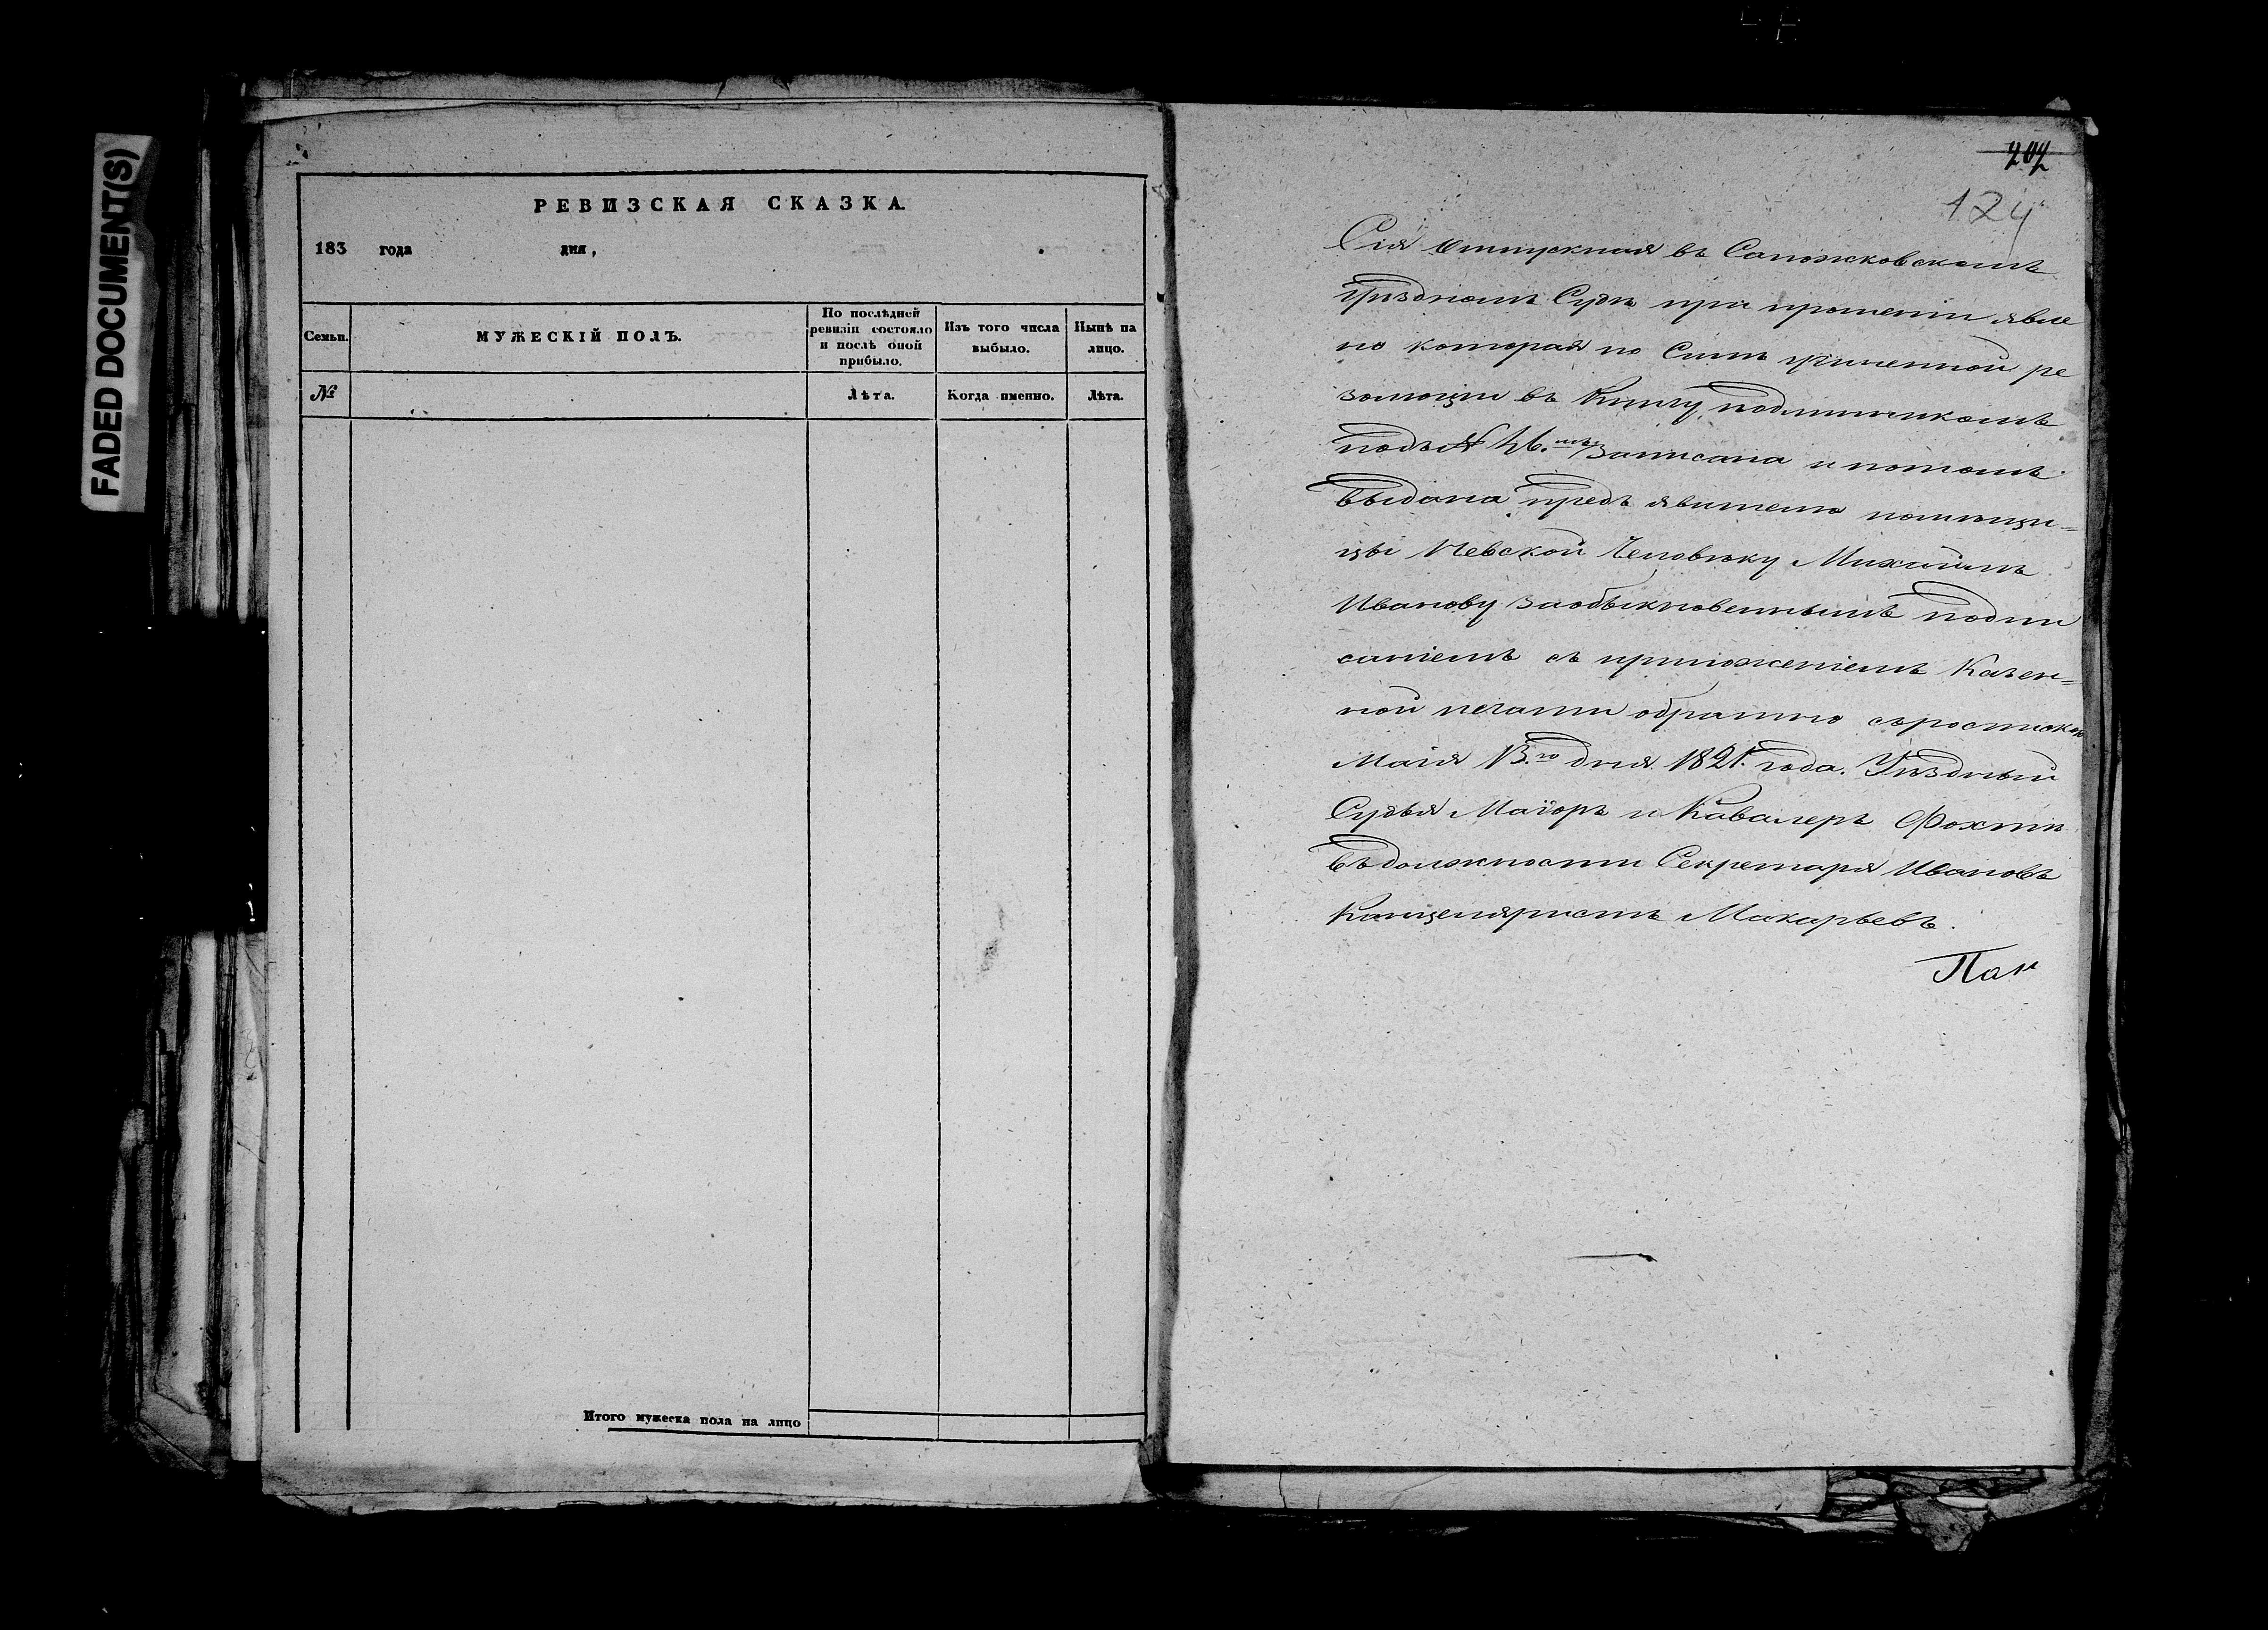 FADED DOCUMENT(S)
РЕВИЗСКАЯ СКАЗКА.
183 года дня,
Семьи.
МУЖЕСКІЙ ПОЛЪ.
По послѣдней
ревизіи состояло
и послѣ оной
прибыло.
Изъ того числа
выбыло.
Нынѣ на
лицо.
№
Лѣта.
Когда именно.
Лѣта.
Итого мужеска пола на лицо
202
124
Сія Отпускная въ Сапожковскомъ
уѣздномъ Судѣ при прошеніи явле
но которая по Силѣ учиненной ре
золюціи въ Книгу подлинникомъ
подъ № записана и потомъ
выдана предъявителю помѣщи=
цы Невской Человѣку Михайлѣ
Иванову за обыкновеннымъ подпи
саніемъ съ приложеніемъ Казен=
ной печати обратно съ роспискою
Маія 13.го дня 1821. года. Уѣздный
Судья Маіоръ и Кавалеръ Фохтъ
въ должности Секретаря Ивановъ
Канцеляристъ Макарьевъ.